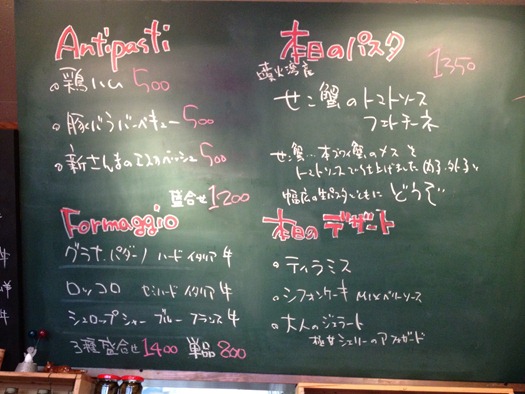 Antipasti
・鶏ハム 500
・豚バラバーベキュー 500
・新さんまのエスカベッシュ 500
盛合せ 1200
Formaggio
グラナ・パダーノ ハード イタリア 牛
ロッコロ セミハード イタリア 牛
シュロップシャーブルー フランス 牛
3種盛合せ 1400 単品 800
本日のパスタ
1350
せこ蟹のトマトソース
フェトチーネ
せこ蟹…本ズワイ蟹のメスを
トマトソースで仕上げました
幅広の生パスタとともに どうぞ
本日の デザート
・ティラミス
・シフォンケーキ MIXベリーソース
・大人のジェラート
極甘シェリーのアフォガード